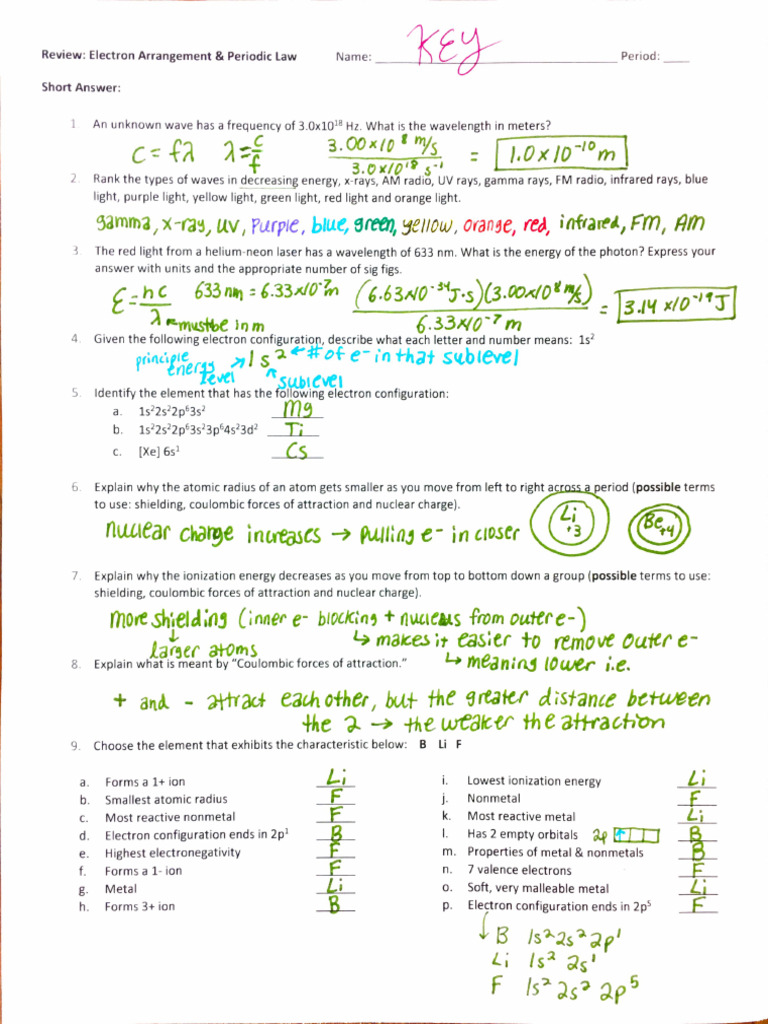 Review: Electron Arrangement & Periodic Law Name: KEY Period: ____
Short Answer:
1. An unknown wave has a frequency of 3.0x10¹⁸ Hz. What is the wavelength in meters?
c = fλ λ = c/f 3.00 x 10⁸ m/s / 3.0 x 10¹⁸ s⁻¹ = 1.0 x 10⁻¹⁰ m
2. Rank the types of waves in decreasing energy, x-rays, AM radio, UV rays, gamma rays, FM radio, infrared rays, blue
light, purple light, yellow light, green light, red light and orange light.
gamma, x-ray, UV, Purple, blue, green, yellow, orange, red, infrared, FM, AM
3. The red light from a helium-neon laser has a wavelength of 633 nm. What is the energy of the photon? Express your
answer with units and the appropriate number of sig figs.
E = hc/λ 633 nm = 6.33 x 10⁻⁷ m (6.63x10⁻³⁴ J·s)(3.00x10⁸ m/s) / 6.33 x 10⁻⁷ m = 3.14 x 10⁻¹⁹ J
← must be in m
4. Given the following electron configuration, describe what each letter and number means: 1s²
principle energy level → 1s² ← # of e- in that sublevel
↖ sublevel
5. Identify the element that has the following electron configuration:
a. 1s²2s²2p⁶3s² Mg
b. 1s²2s²2p⁶3s²3p⁶4s²3d² Ti
c. [Xe] 6s¹ Cs
6. Explain why the atomic radius of an atom gets smaller as you move from left to right across a period (possible terms
to use: shielding, coulombic forces of attraction and nuclear charge).
nuclear charge increases → pulling e- in closer Li +3 Be +4
7. Explain why the ionization energy decreases as you move from top to bottom down a group (possible terms to use:
shielding, coulombic forces of attraction and nuclear charge).
more shielding (inner e- blocking + nucleus from outer e-)
↓ larger atoms ↳ makes it easier to remove outer e-
8. Explain what is meant by "Coulombic forces of attraction." ↳ meaning lower i.e.
+ and - attract each other, but the greater distance between
the 2 → the weaker the attraction
9. Choose the element that exhibits the characteristic below: B Li F
a. Forms a 1+ ion Li
b. Smallest atomic radius F
c. Most reactive nonmetal F
d. Electron configuration ends in 2p¹ B
e. Highest electronegativity F
f. Forms a 1- ion F
g. Metal Li
h. Forms 3+ ion B
i. Lowest ionization energy Li
j. Nonmetal F
k. Most reactive metal Li
l. Has 2 empty orbitals 2p ↑ B
m. Properties of metal & nonmetals B
n. 7 valence electrons F
o. Soft, very malleable metal Li
p. Electron configuration ends in 2p⁵ F
↓ B 1s² 2s² 2p¹
Li 1s² 2s¹
F 1s² 2s² 2p⁵